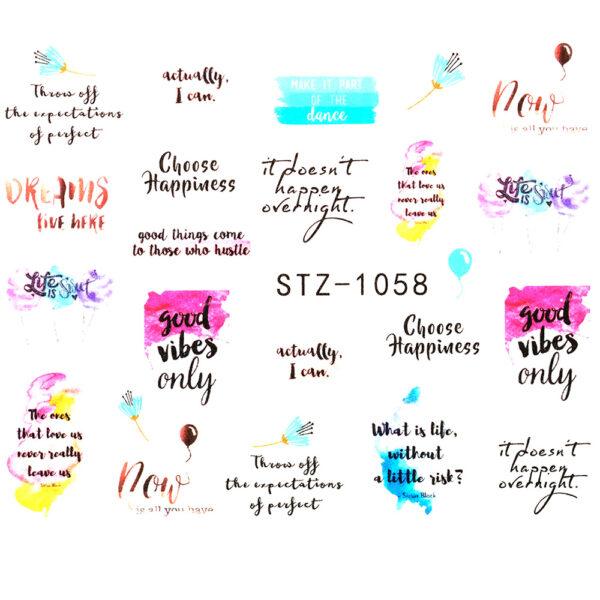 Throw off
the expectations
of perfect
actually,
I can.
MAKE IT PART
OF THE
dance
Now
is all you have
DREAMS
LIVE HERE
Choose
Happiness
it doesn't
happen
overnight.
The ones
that love us
never really
leave us
Life
IS
good things come
to those who hustle
STZ-1058
Life
IS
good
vibes
only
actually,
I can.
Choose
Happiness
good
vibes
only
The ones
that love us
never really
leave us
Now
is all you have
Throw off
the expectations
of perfect
What is life,
without
a little risk?
- Sirius Black
it doesn't
happen
overnight.